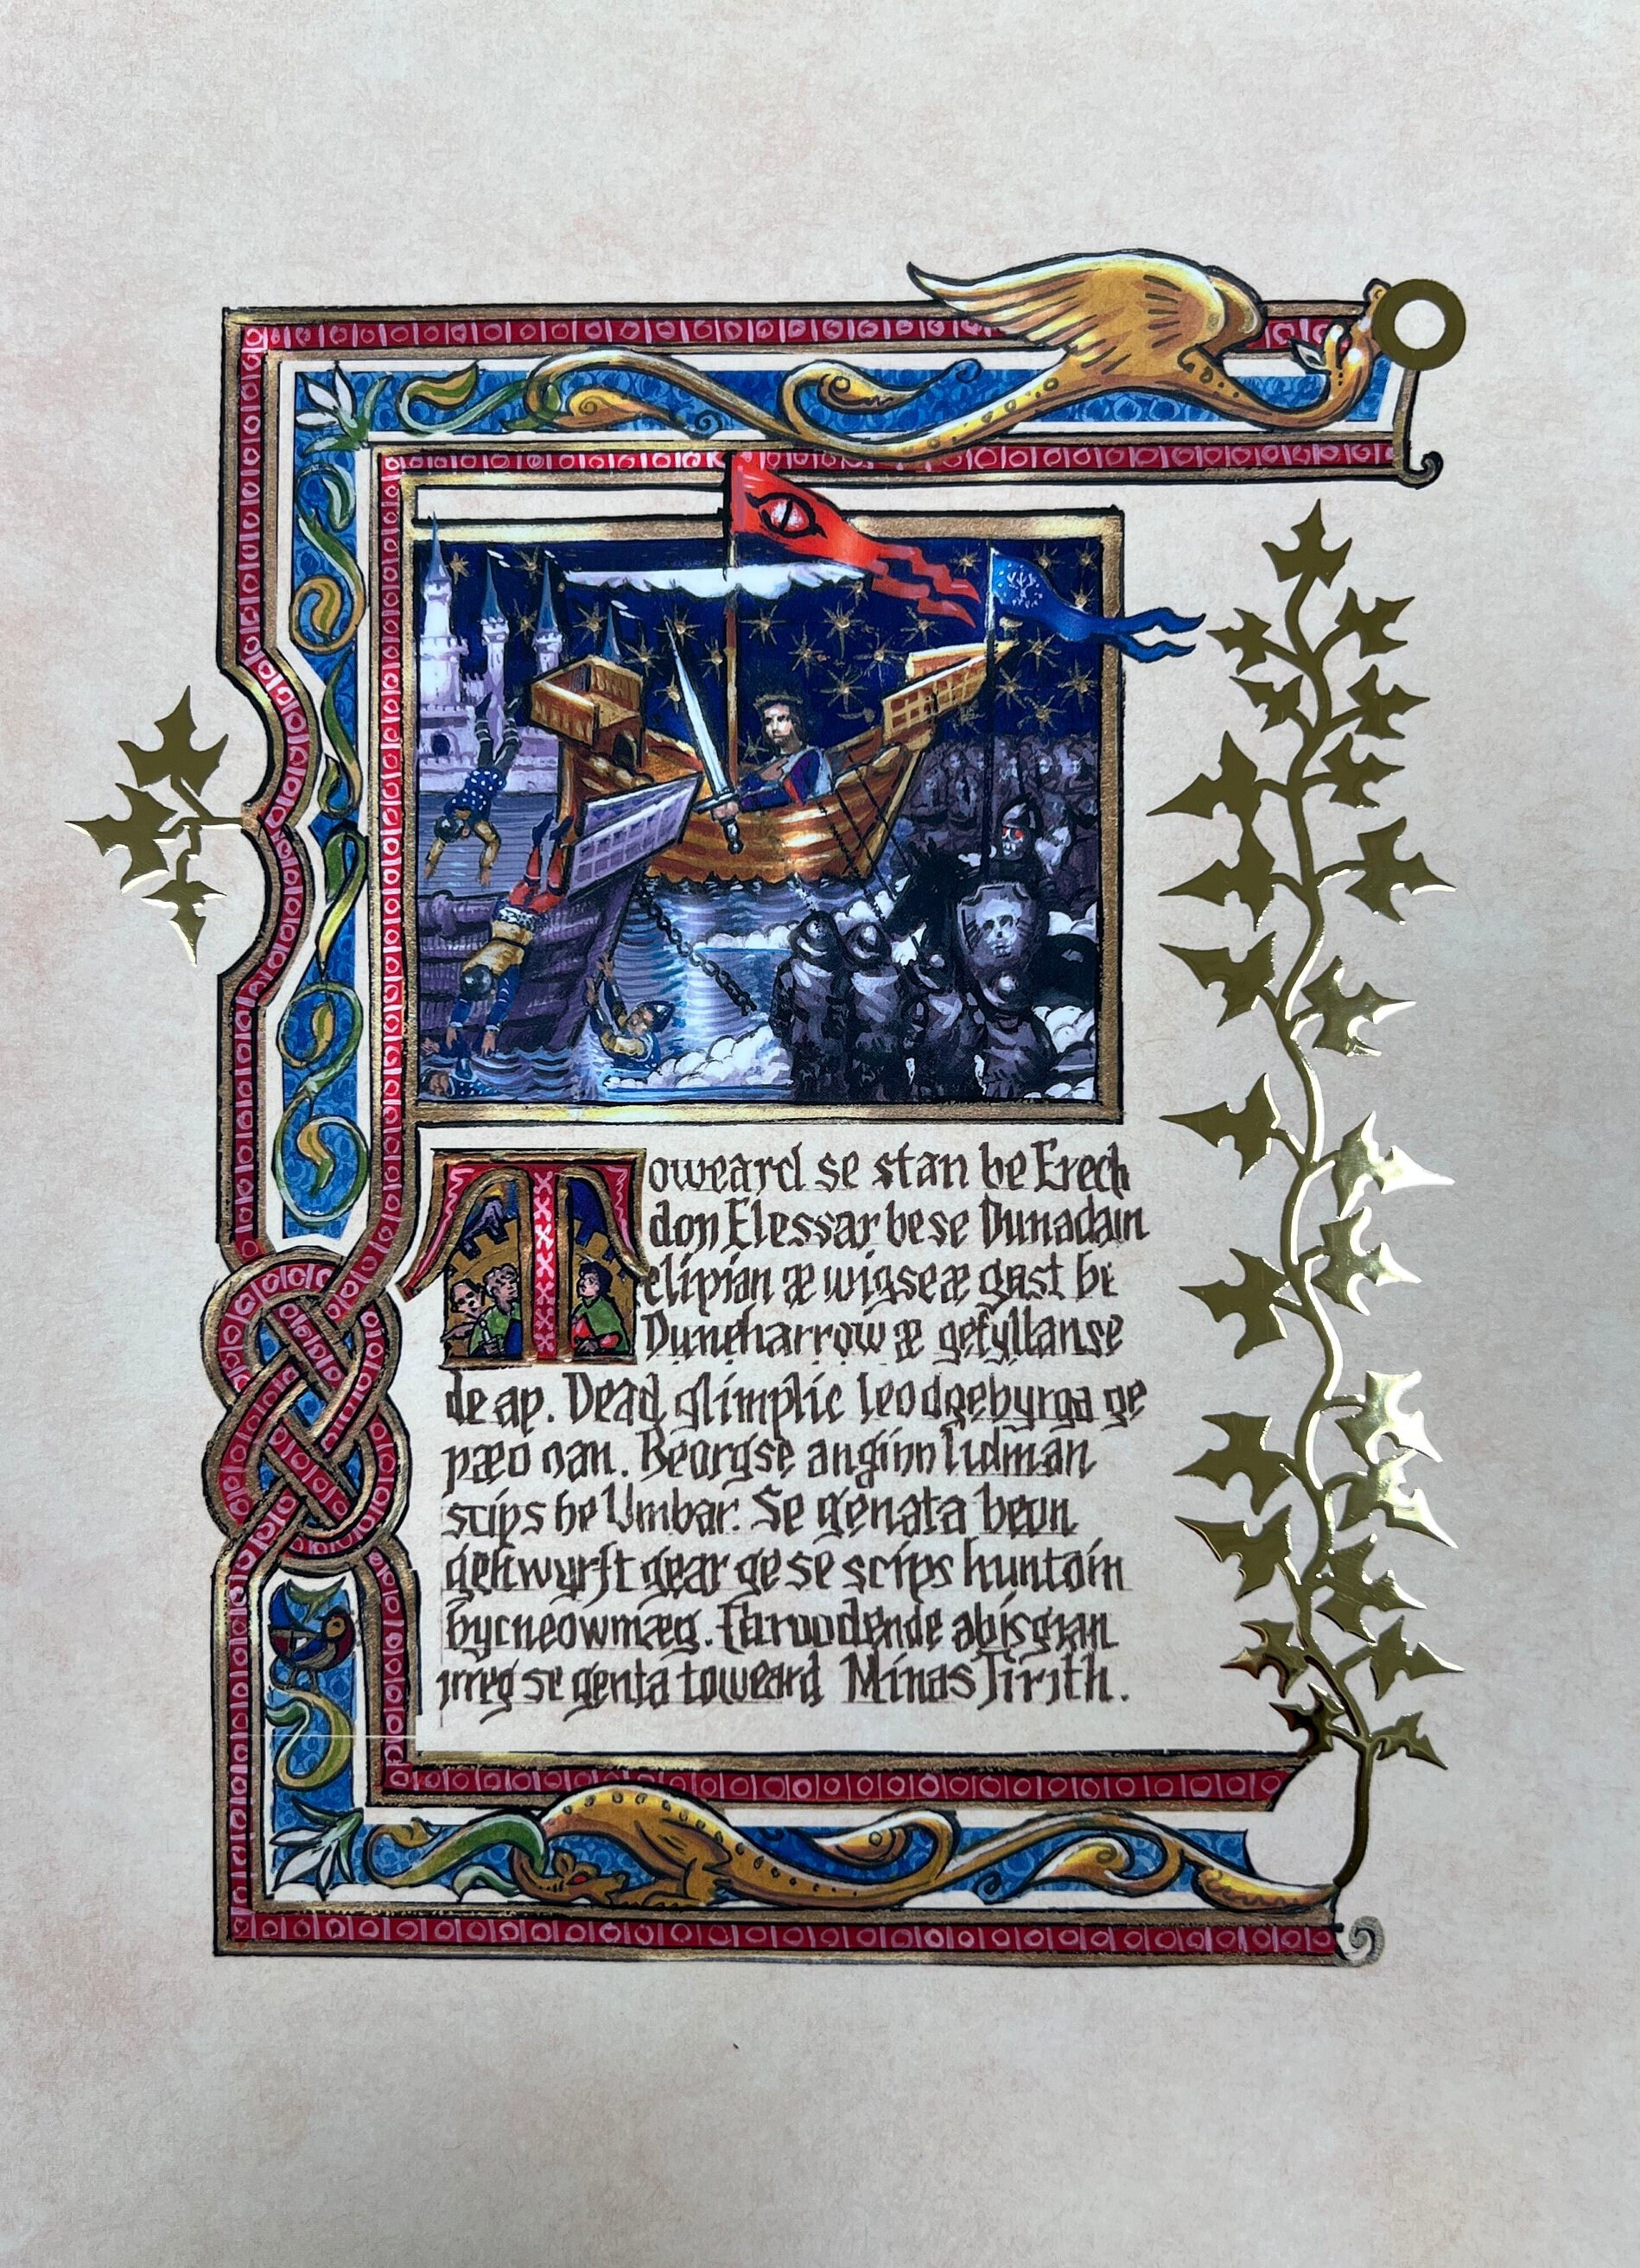 Toweard se stan be Erech
don Elessar be se Dunadain
clipian æ wigse æ gast be
Duneharrow æ gefyllan se
de ap. Dead glimplic leodgebyrga ge
Beorgse anginn lidman
scips be Umbar. Se genata beon
gehwyrft gear ge se scips huntoin
by cneowmæg. abisgian
se genta toweard Minas Tirith.